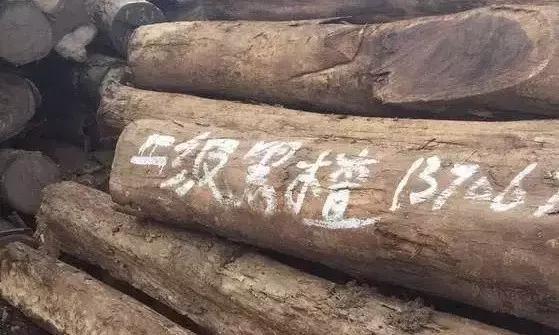 二级黑檀 13706